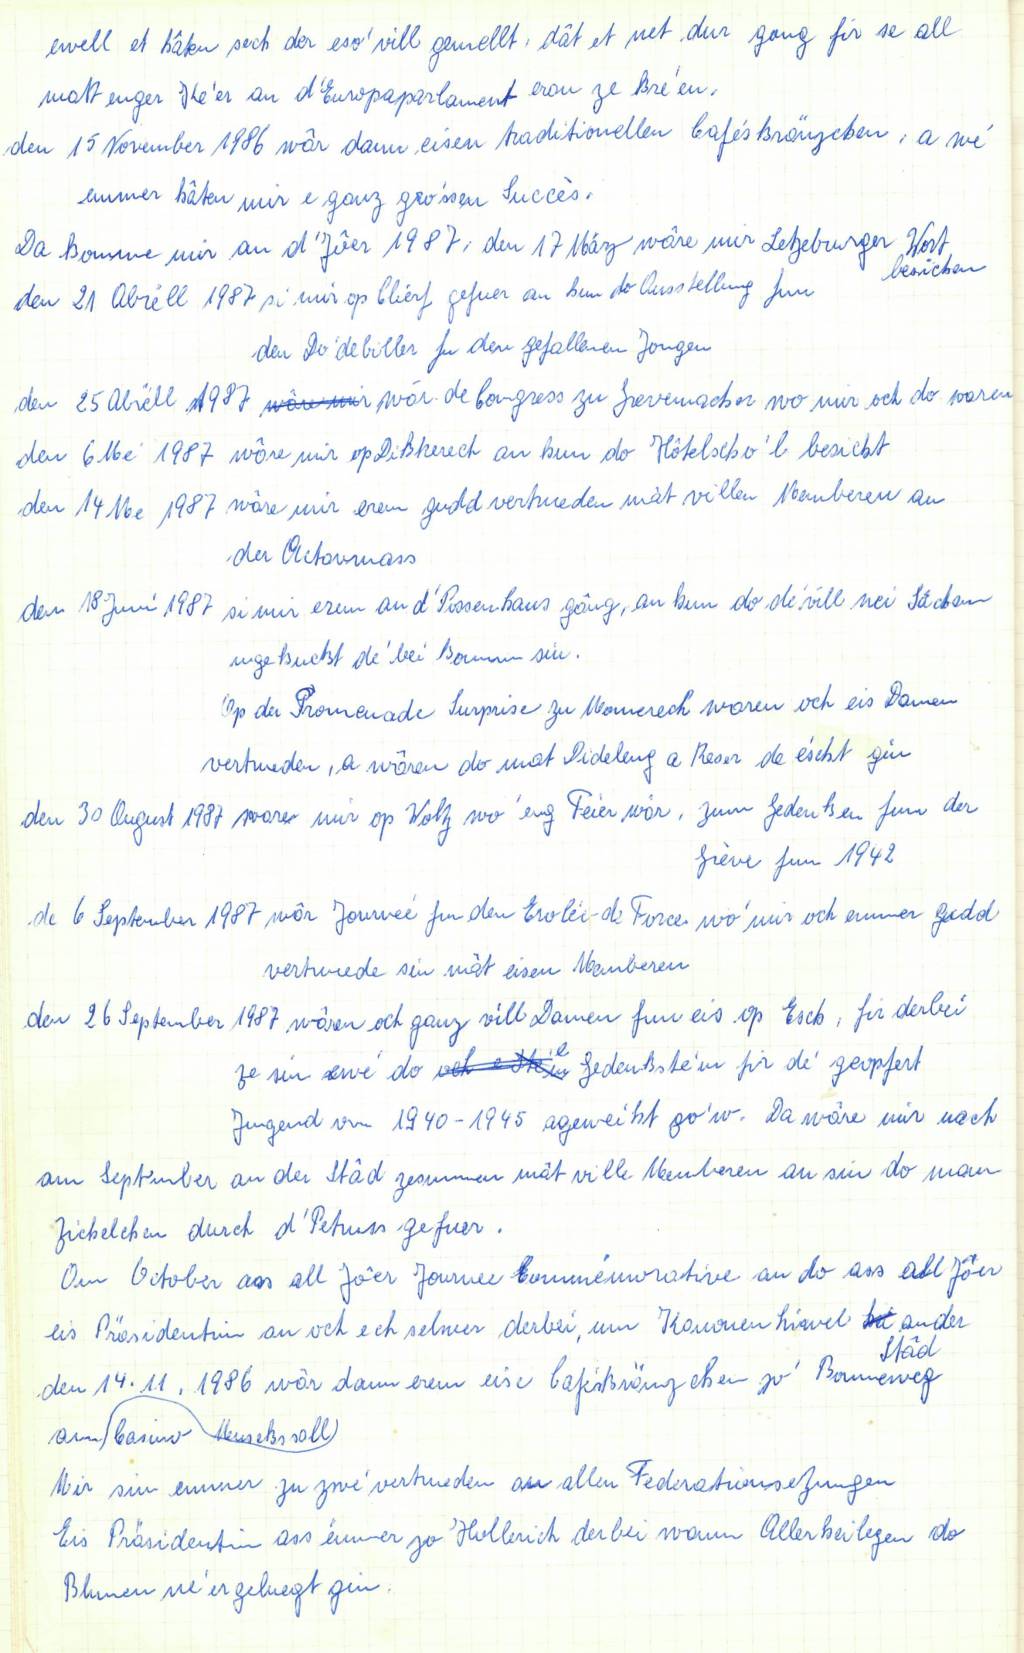 ewell et hâten sech der eso' vill gemellt, dât et net dur gong fir se all
matt enger Ké'er an d'Europaparlament eran ze kré'en.
den 15 November 1986 wâr dann eisen traditionellen Caféskränzchen, a wé
emmer hâten mir e ganz gro'ssen Succès.
Da komme mir an d'Jôer 1987, den 17 März wâre mir Letzeburger Wort
besichen
den 21 Abrëll 1987 si mir op Clierf gefuer an hun do Ausstellung fun
den Do'debiller fu den gefallenen Jongen
den 25 Abrëll 1987 wâr de Congress zu Grevemacher wo mir och do waren
den 6 Mé 1987 wâre mir op Dikkerech an hun do Hôtelscho'l besicht
den 14 Me 1987 wâre mir erem gudd vertrueden mât villen Memberen an
der Octavmass
den 18 Juni 1987 si mir erem an d'Possenhaus gâng, an hun do dé vill nei Sachen
ugekuckt dé bei komm sin.
Op der Promenade Surprise zu Mamerech waren och eis Damen
vertrueden, a wâren do mat Dideleng a Keser de éscht gin
den 30 August 1987 ware mir op Wolz wo eng Feier wâr, zum Gedenken fun der
Grève fun 1942
de 6 September 1987 wâr Journeé fun den Enrôlé-de Force wo' mir och emmer gudd
vertruede sin mât eisen Memberen
den 26 September 1987 wâren och ganz vill Damen fun eis op Esch, fir derbei
ze sin wé do e Gedenksté'in fir dé geopfert
Jugend vun 1940-1945 ageweiht go'w. Da wâre mir nach
am September an der Stâd zesummen mât ville Memberen an sin do mam
Zichelchen durch d'Petruss gefuer.
Am October ass all Jôer Journee Commémorative an do ass all Jôer
eis Präsidentin an och ech selwer derbei, um Kanounenhiwel an der
Stâd
den 14.11.1986 wâr dann erem eise Caféskränzchen zo' Bonneweg
am Casino Museksall
Mir sin emmer zu zwé vertrueden an allen Federationsetzungen
Eis Präsidentin ass ëmmer zo' Hollerich derbei wann Allerheilegen do
Blumen né'ergeluegt gin.